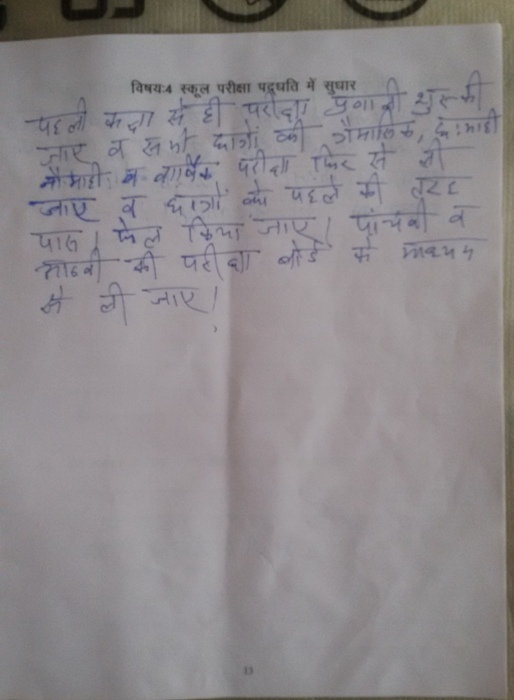 विषय:4 स्कूल परीक्षा पद्धति में सुधार
पहली कक्षा से ही परीक्षा प्रणाली शुरू की
जाए व सभी छात्रों की त्रैमासिक, छःमाही
नौमाही व वार्षिक परीक्षा फिर से ली
जाए व छात्रों को पहले की तरह
पास / फेल किया जाए। पांचवी व
आठवी की परीक्षा बोर्ड के माध्यम
से ली जाए।
13